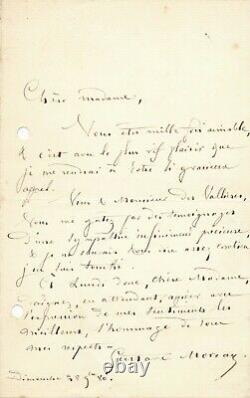 Chère Madame,
Vous êtes mille fois aimable,
& c'est avec le plus vif plaisir que
je me rendrai à votre si gracieux
appel.
Vous & Monsieur des Vallières
vous me gâtez par des témoignages
d'une sympathie infiniment précieuse,
& je ne saurais vous dire assez combien
j'en suis touché.
À Lundi donc, chère Madame,
daignez, en attendant, agréer avec
l'expression de mes sentiments les
meilleurs, l'hommage de tous
mes respects.
Gustave Moreau
Dimanche 28 9bre 80.